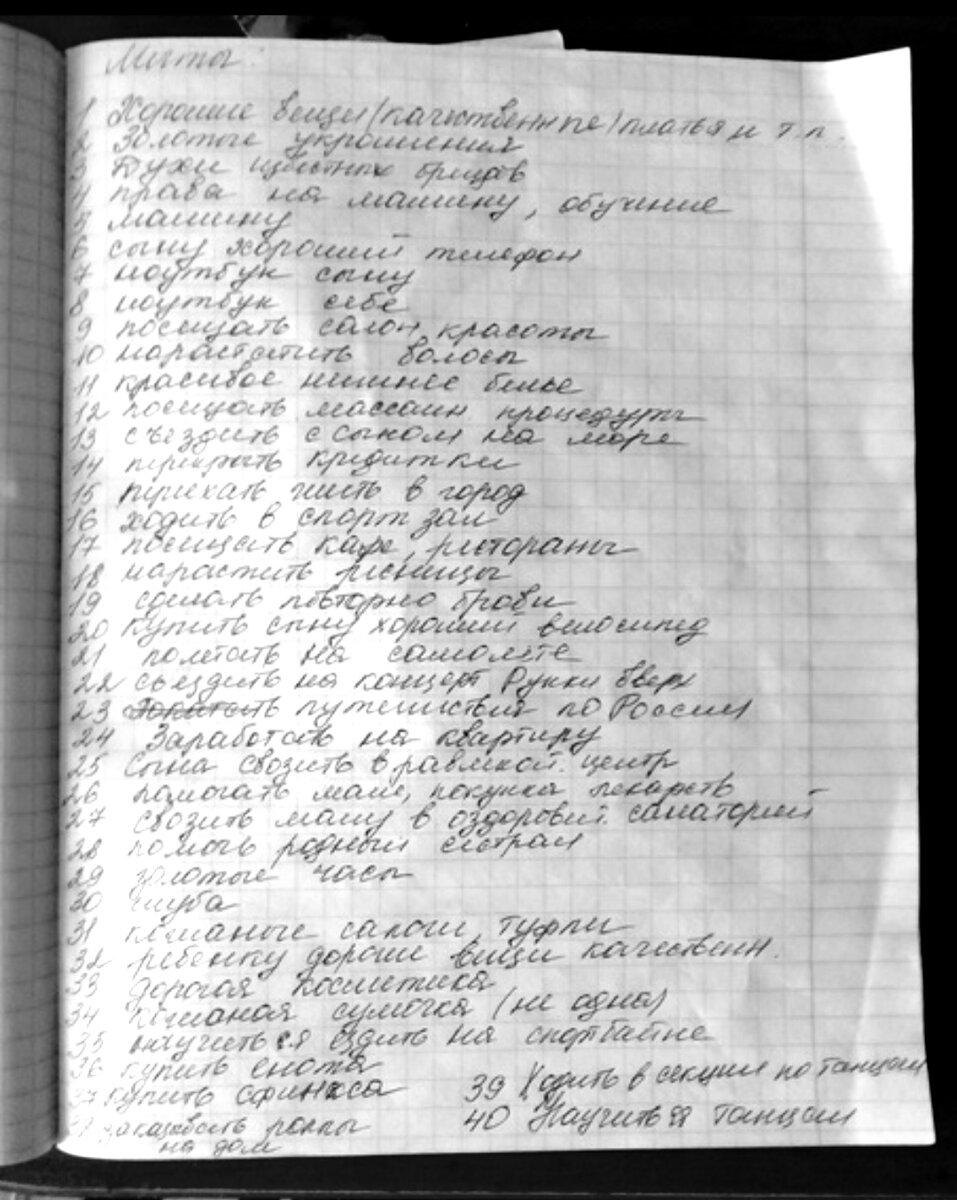 Мечты:
1 Хорошие вещи/качественные/платья и т.п.
2 Золотые украшения
3 Духи известных брендов
4 права на машину, обучение
5 машину
6 сыну хороший телефон
7 ноутбук сыну
8 ноутбук себе
9 посещать салон красоты
10 нарастить волосы
11 красивое нижнее белье
12 посещать массаж процедуры
13 съездить с сыном на море
14 перекрыть кредитки
15 переехать жить в город
16 ходить в спорт зал
17 посещать кафе, рестораны
18 нарастить ресницы
19 сделать повторно брови
20 купить сыну хороший велосипед
21 полетать на самолете
22 съездить на концерт Руки вверх
23 путешествия по России
24 Заработать на квартиру
25 сына свозить в центр
26 помогать маме, покупка лекарств
27 свозить маму в оздоровит. санаторий
28 помочь родным сестрам
29 золотые часы
30 шуба
31 кожаные сапоги, туфли
32 ребенку дорогие вещи качественн.
33 дорогая косметика
34 кожаная сумочка (не одна)
35 научиться ездить на спортбайке
36 купить енота
37 купить сфинкса
39 Ходить в секции по танцам
38 заказывать роллы
на дом
40 Научиться танцам